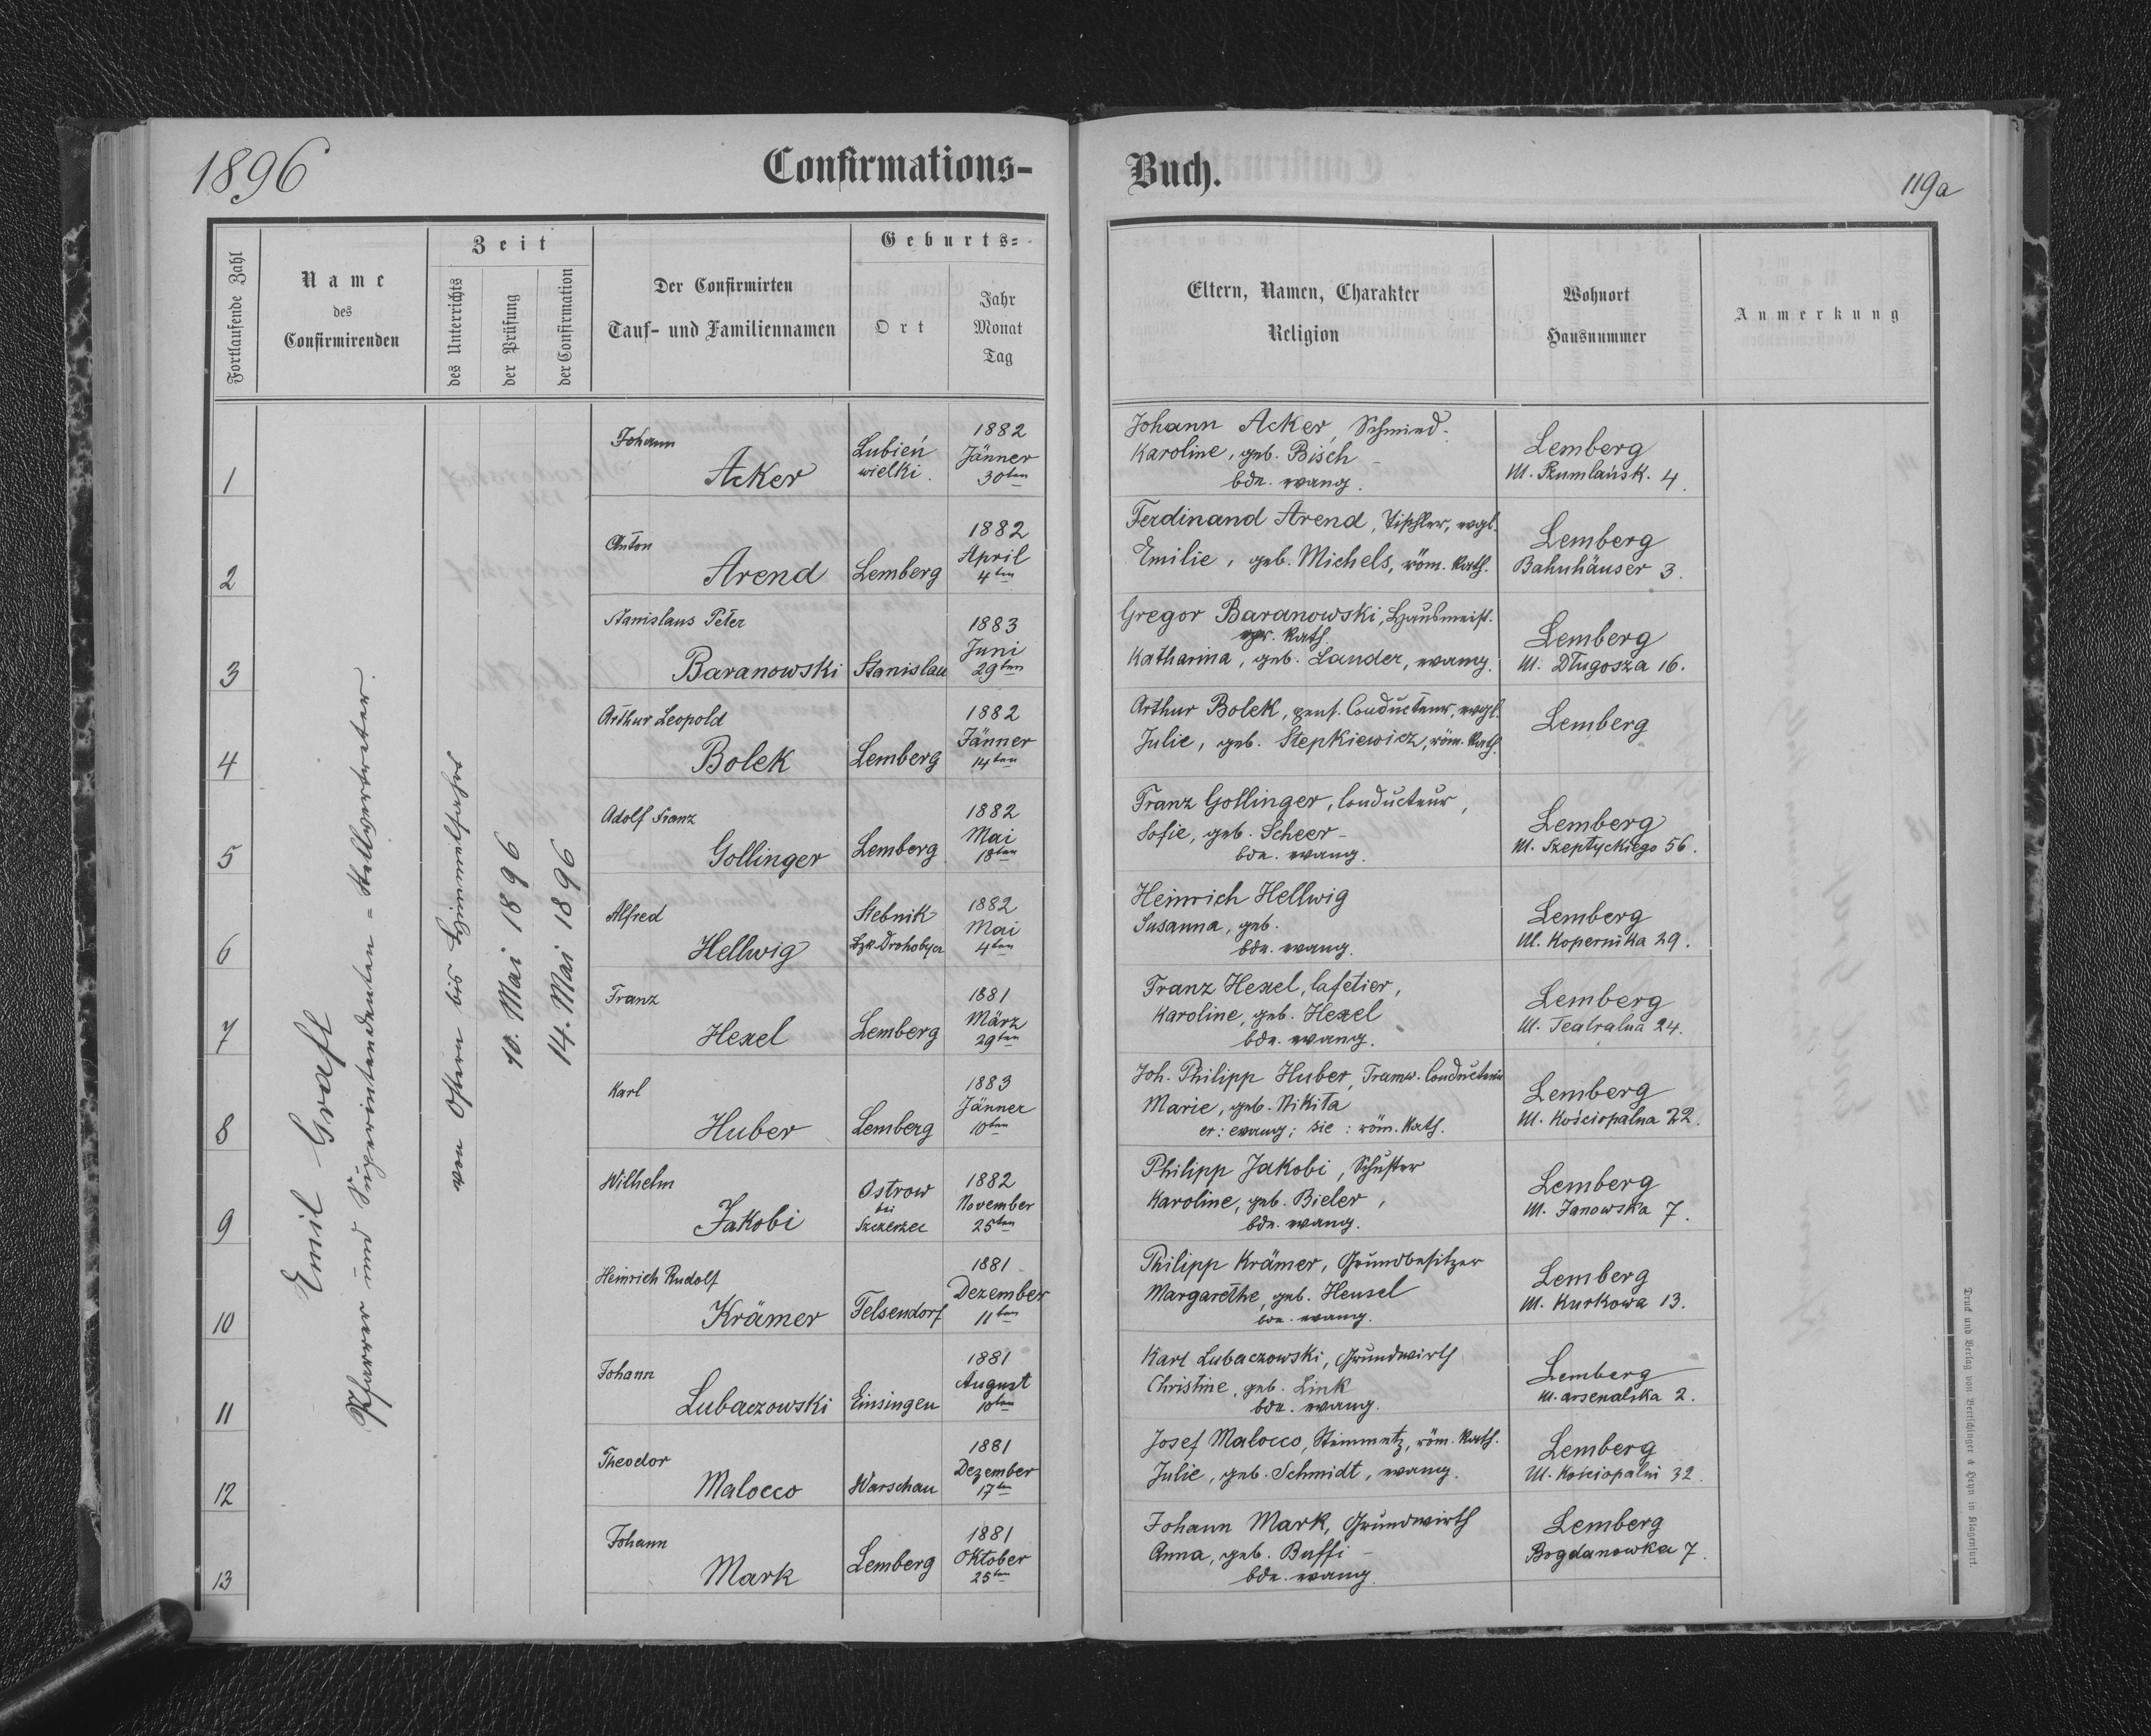 1896
Confirmations-
Buch.
119a
Fortlaufende Zahl
Name
des
Confirmirenden
Zeit
des Unterrichts
der Prüfung
der Confirmation
Der Confirmirten
Tauf- und Familiennamen
Geburts-
Ort
Jahr
Monat
Tag
Eltern, Namen, Charakter
Religion
Wohnort
Hausnummer
Anmerkung
Emil Grafl
Pfarrer und Superintendenten-Stellvertreter.
von Ostern bis Himmelfahrt
10. Mai 1896
14. Mai 1896
1
Johann
Acker
Lubień
wielki.
1882
Jänner
30ten
Johann Acker, Schmied.
Karoline, geb. Bisch -
bde. evang.
Lemberg
Ul. Szumlańsk. 4.
2
Anton
Arend
Lemberg
1882
April
4ten
Ferdinand Arend, Tischler, evgl.
Emilie, geb. Michels, röm. kath.
Lemberg
Bahnhäuser 3.
3
Stanislaus Peter
Baranowski
Stanislau
1883
Juni
29ten
Gregor Baranowski, Hausmeist.
gr. kath.
Katharina, geb. Lander, evang.
Lemberg
Ul. Długosza 16.
4
Arthur Leopold
Bolek
Lemberg
1882
Jänner
14ten
Arthur Bolek, pens. Conducteur, evgl.
Julie, geb. Stepkiewicz, röm. kath.
Lemberg
5
Adolf Franz
Gollinger
Lemberg
1882
Mai
18ten
Franz Gollinger, Conducteur,
Sofie, geb. Scheer -
bde. evang.
Lemberg
Ul. Szeptyckiego 56.
6
Alfred
Hellwig
Stebnik
Bzk. Drohobycz
1882
Mai
4ten
Heinrich Hellwig
Susanna, geb.
bde. evang.
Lemberg
Ul. Kopernika 29.
7
Franz
Hexel
Lemberg
1881
März
29ten
Franz Hexel, Cafetier,
Karoline, geb. Hexel
bde. evang.
Lemberg
Ul. Teatralna 24.
8
Karl
Huber
Lemberg
1883
Jänner
10ten
Joh. Philipp Huber, Tramw. Conducteur
Marie, geb. Nikita
er: evang; sie: röm. kath.
Lemberg
Ul. Kościopalna 22.
9
Wilhelm
Jakobi
Ostrow
bei
Szczerzec
1882
November
25ten
Philipp Jakobi, Schuster
Karoline, geb. Bieler,
bde. evang.
Lemberg
Ul. Janowska 7.
10
Heinrich Rudolf
Krämer
Felsendorf
1881
Dezember
11ten
Philipp Krämer, Grundbesitzer
Margarethe, geb. Hensel
bde. evang.
Lemberg
Ul. Kurkowa 13.
11
Johann
Lubaczowski
Einsingen
1881
August
10ten
Karl Lubaczowski, Grundwirth
Christine, geb. Link
bde. evang.
Lemberg
Ul. arsenalska 2.
12
Theodor
Malocco
Warschau
1881
Dezember
17ten
Josef Malocco, Steinmetz, röm. kath.
Julie, geb. Schmidt, evang.
Lemberg
Ul. Kościopalni 32.
13
Johann
Mark
Lemberg
1881
Oktober
25ten
Johann Mark, Grundwirth
Anna, geb. Buffi -
bde. evang.
Lemberg
Bogdanowka 7.
Druck und Verlag von Bertschinger & Heyn in Klagenfurt.